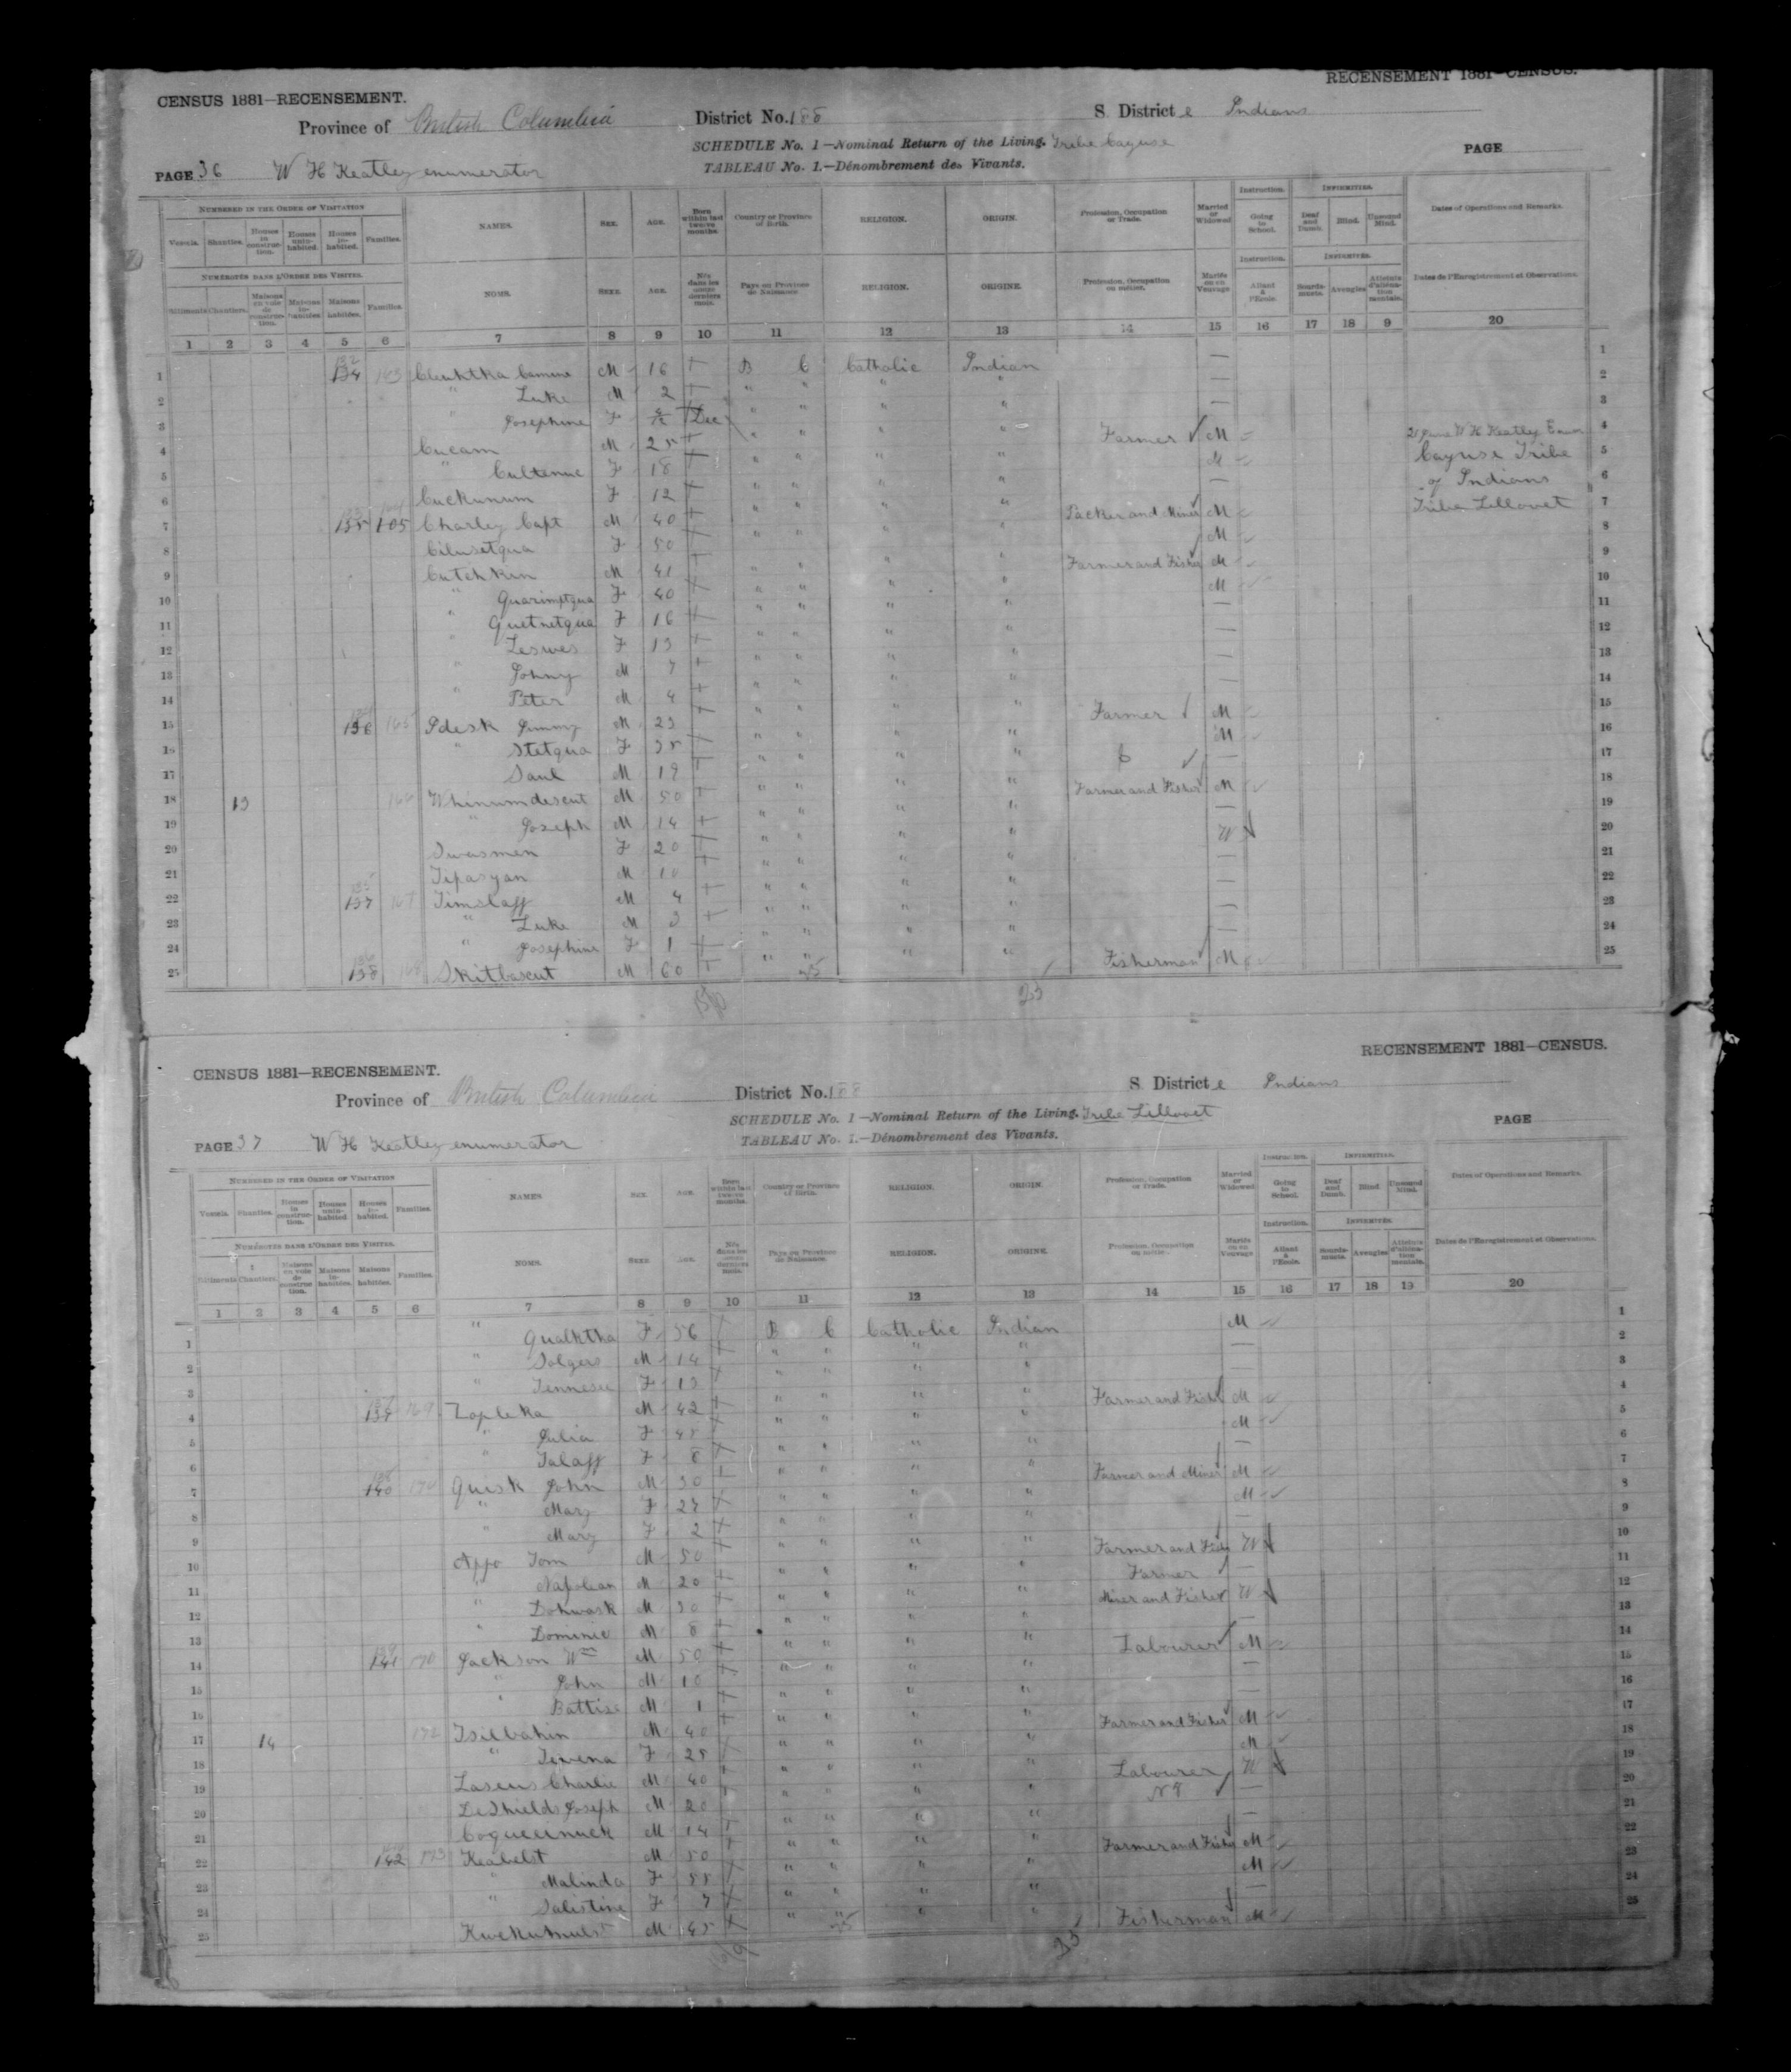 RECENSEMENT 1881—CENSUS.
CENSUS 1881—RECENSEMENT.
Province of British Columbia District No. 188 S. District e Indians
SCHEDULE No. 1—Nominal Return of the Living. Tribe Cayuse
PAGE 36 W H Keatley enumerator TABLEAU No. 1.—Dénombrement des Vivants. PAGE
NUMBERED IN THE ORDER OF VISITATION
Vessels. Shanties. Houses in construction. Houses uninhabited. Houses inhabited. Families. NAMES. SEX. AGE. Born within last twelve months. Country or Province of Birth. RELIGION. ORIGIN. Profession, Occupation or Trade. Married or Widowed Instruction. Going to School. INFIRMITIES. Deaf and Dumb. Blind. Unsound Mind. Dates of Operations and Remarks.
NUMÉROTÉS DANS L'ORDRE DES VISITES.
Bâtiments Chantiers. Maisons en voie de construction. Maisons inhabitées Maisons habitées. Familles. NOMS. SEXE. AGE. Nés dans les douze derniers mois. Pays ou Province de Naissance. RELIGION. ORIGINE. Profession, Occupation ou métier. Mariés ou en Veuvage Instruction. Allant à l'École. INFIRMITÉS. Sourds-muets. Aveugles Atteints d'aliénation mentale. Dates de l'Enregistrement et Observations.
1 2 3 4 5 6 7 8 9 10 11 12 13 14 15 16 17 18 9 20
1 134 163 M 16 B C Catholic Indian — 1
2 " Luke M 2 " " " " — 2
3 " Josephine F Dec " " " " — 3
4 Cucam M 25 " " " " Farmer M 4 W H Keatley Enum
5 " Cultenue F 18 " " " " M 5 Cayuse Tribe
6 Cuckunum F 12 " " " " — 6 of Indians
7 135 Charley Capt M 40 " " " " Packer and Miner M 7 Tribe Lillooet
8 Cilusetqua F 50 " " " " M 8
9 Cutchkin M 41 " " " " Farmer and Fisher M 9
10 " Quarimptqua F 40 " " " " M 10
11 " Quetnetqua F 16 " " " " — 11
12 " Leswes F 13 " " " " — 12
13 " Johny M 7 " " " " — 13
14 " Peter M 4 " " " " — 14
15 136 165 Pdesk Jimmy M 23 " " " " Farmer M 15
16 " Stetqua F 35 " " " " M 16
17 Saul M 19 " " " " — 17
18 13 166 Whinumdescut M 50 " " " " Farmer and Fisher M 18
19 " Joseph M 14 " " " " — 19
20 Swasmen F 20 " " " " W 20
21 Tepasyan M 10 " " " " — 21
22 137 167 Timslaff M 4 " " " " — 22
23 " Luke M 3 " " " " — 23
24 " Josephine F 1 " " " " — 24
25 138 168 Skitbascut M 60 " " " " Fisherman M 25
RECENSEMENT 1881—CENSUS.
CENSUS 1881—RECENSEMENT.
Province of British Columbia District No. 188 S. District e Indians
SCHEDULE No. 1—Nominal Return of the Living. Tribe Lillooet
PAGE 37 W H Keatley enumerator TABLEAU No. 1.—Dénombrement des Vivants. PAGE
NUMBERED IN THE ORDER OF VISITATION
Vessels. Shanties. Houses in construction. Houses uninhabited Houses inhabited. Families. NAMES SEX. AGE. Born within last twelve months. Country or Province of Birth. RELIGION. ORIGIN. Profession, Occupation or Trade. Married or Widowed Instruction. Going to School. INFIRMITIES. Deaf and Dumb. Blind. Unsound Mind. Dates of Operations and Remarks.
NUMÉROTÉS DANS L'ORDRE DES VISITES.
Bâtiments Chantiers. Maisons en voie de construction. Maisons inhabitées. Maisons habitées. Familles. NOMS. SEXE. AGE. Nés dans les douze derniers mois. Pays ou Province de Naissance. RELIGION. ORIGINE. Profession, Occupation ou métier. Mariés ou en Veuvage Instruction. Allant à l'École. INFIRMITÉS. Sourds-muets. Aveugles Atteints d'aliénation mentale. Dates de l'Enregistrement et Observations.
1 2 3 4 5 6 7 8 9 10 11 12 13 14 15 16 17 18 19 20
1 " Qualktka F 56 B C Catholic Indian M 1
2 " Solgers M 14 " " " " — 2
3 " Tennesee F 13 " " " " 3
4 139 169 Lopleka M 42 " " " " Farmer and Fisher M 4
5 " Julia F 45 " " " " M 5
6 " Talaff F 8 " " " " — 6
7 140 170 Quisk John M 30 " " " " Farmer and Miner M 7
8 " Mary F 27 " " " " M 8
9 " Mary F 2 " " " " — 9
10 Appo Tom M 50 " " " " Farmer and Fisher W 10
11 " Napolean M 20 " " " " Farmer — 11
12 " Dohwask M 30 " " " " Miner and Fisher W 12
13 " Dominie M 8 " " " " — 13
14 141 Jackson Wm M 50 " " " " Labourer M 14
15 " John M 10 " " " " — 15
16 " Battise M 1 " " " " — 16
17 14 172 Tsilbahin M 40 " " " " Farmer and Fisher M 17
18 " Tewena F 25 " " " " M 18
19 Laseus Charlie M 40 " " " " Labourer W 19
20 DeShields Joseph M 20 " " " " — 20
21 Coqueeinuck M 14 " " " " — 21
22 142 173 Keabelst M 50 " " " " Farmer and Fisher M 22
23 " Malinda F 55 " " " " M 23
24 " Salistine F 7 " " " " — 24
25 M 45 " " " " Fisherman M 25